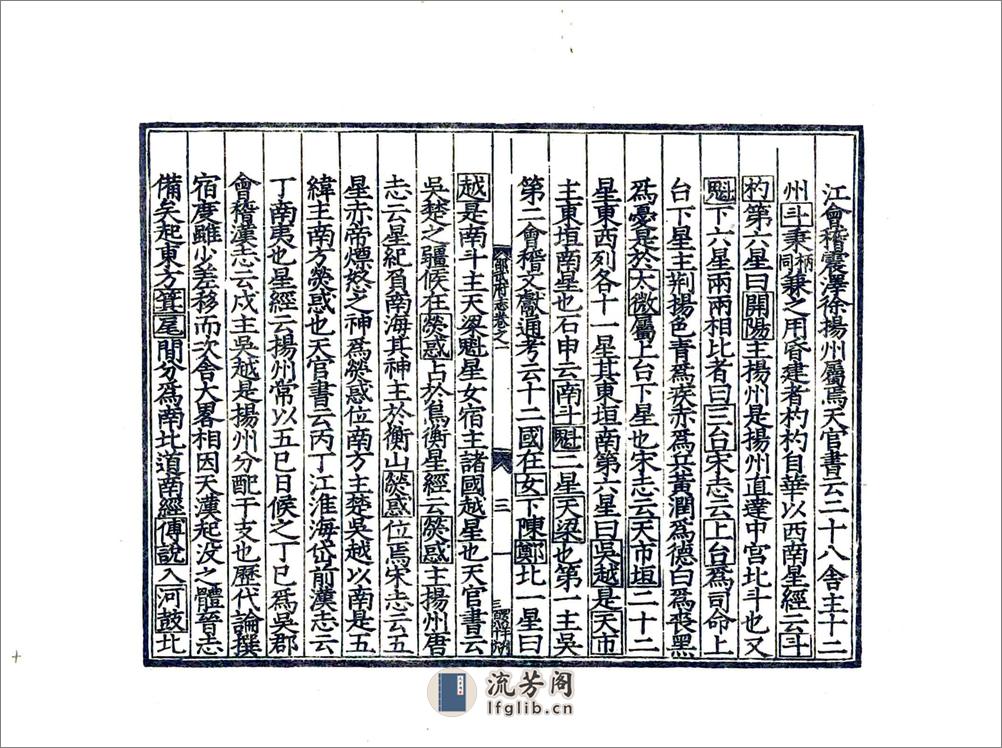 江會稽震澤徐揚州屬焉天官書云二十八舍主十二
州斗秉同柄兼之用昏建者杓杓自華以西南星經云斗
杓第六星曰開陽主揚州是揚州直達中宮北斗也又
魁下六星兩兩相比者曰三台宋志云上台爲司命上
台下星主荆揚色青爲疾赤爲兵黃潤爲德白爲喪黑
爲憂是於太微屬上台下星也宋志云天市垣二十二
星東西列各十一星其東垣南第六星曰吳越是天市
主東垣南星也石申云南斗魁二星天梁也第一主吳
第二會稽文獻通考云十二國在女下陳鄭北一星曰
卷之一
三
越是南斗主天梁魁星女宿主諸國越星也天官書云
吳楚之疆候在熒惑占於鳥衡星經云熒惑主揚州唐
志云星紀負南海其神主於衡山熒惑位焉宋志云五
星赤帝熛怒之神爲熒惑位南方主楚吳越以南是五
緯主南方熒惑也天官書云丙丁江淮海岱前漢志云
丁南夷也星經云揚州常以五巳日候之丁巳爲吳郡
會稽漢志云戊主吳越是揚州分配干支也歷代論撰
宿度雖少差移而次舍大畧相因天漢起没之體晉志
備矣起東方箕尾間分爲南北道南經傅說入河鼓北
流芳阁
lfglib.cn